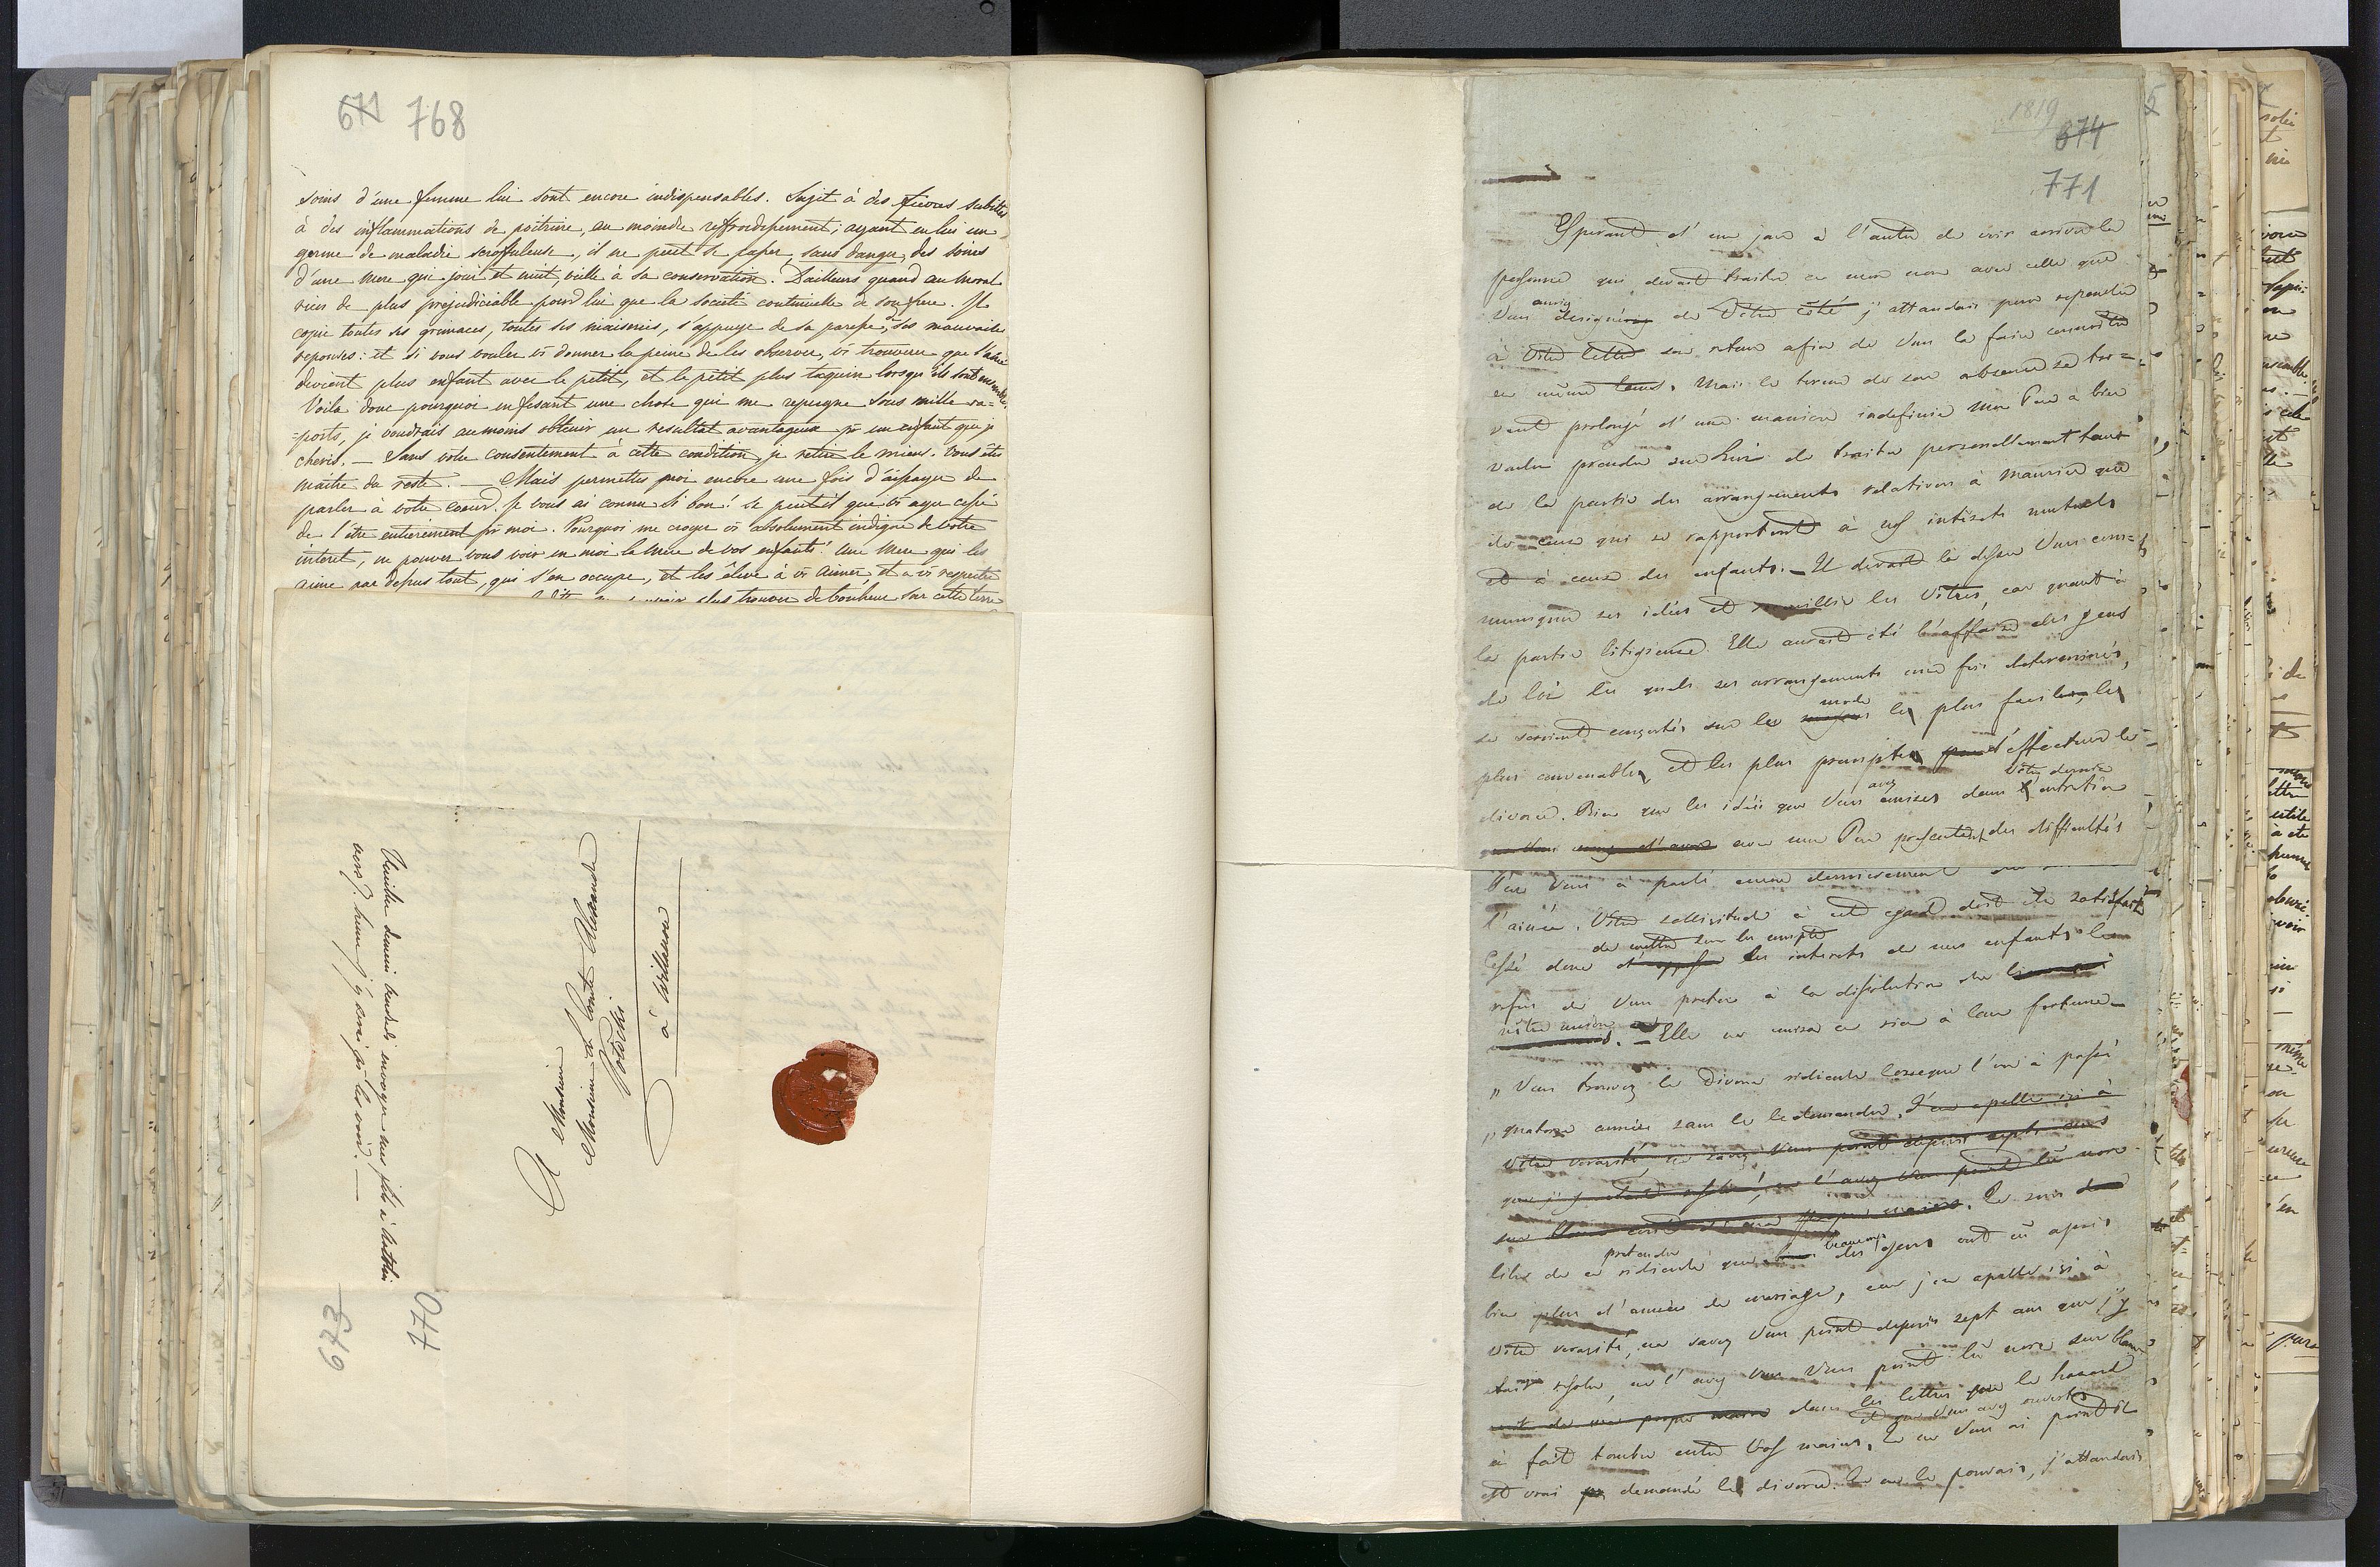 671 768
soins d'une femme lui sont encore indispensables. Sujet à des fievres subittes
à des inflammations de poitrine, au moindre reffroidissement; ayant en lui un
germe de maladie scroffuleuse, il ne peut se passer, sans danger, des soins
d'une mere qui jour et nuit, veille à sa conservation. D'ailleurs quand au moral
rien de plus prejudiciable pour lui que la societé continuelle de son frere. Il
copie toutes ses grimaces, toutes ses niaiseries, s'appuye de sa paresse, de ses mauvaises
reponses: et si vous voulez vs donner la peine de les observer, vs trouverez que l'ainé
devient plus enfant avec le petit, et le petit plus taquin lorsqu'ils sont ensemble.
Voila donc pourquoi en fesant une chose qui me repugne sous mille ra=
=ports, je voudrais aumoins obtenir un resultat avantageux pr un enfant que je
cheris. — Sans votre consentement à cette condition je retire le mien. Vous êtes
maitre du reste. — Mais permettez moi encore une fois d'éssayer de
parler à votre coeur. Je vous ai connu si bon! se peut il que vs ayez cessé
de l'être entierement pr moi. Pourquoi me croyez vs absolument indigne de votre
interet, ne pouvez vous voir en moi la Mere de vos enfants! une Mere qui les
aime par dessus tout, qui s'en occupe, et les élève à vs aimer et a vs respecter
plus trouver de bonheur sur cette terre
A Monsieur
Monsieur le Comte Alexandre
Potocki
à Willanow
Veuillez demain vendredi envoyer mes fils à Natolin
vers 7 heure j'y serai pr les voir. —
673 770
1819
674
771
Esperant d'un jour à l'autre de voir arriver la
personne qui devait traiter en mon nom avec celle que
Vous auriez designé de Votre côté j'attendais pour repondre
à Votre lettre son retour afin de Vous le faire connoitre
en même tems. Mais le terme de son absence se trou=
vant prolongé d'une maniere indefinie mon Pere à bien
voulu prendre sur Lui de traiter personellement tant
de la partie des arrangements relatives à Maurice que
de ceux qui se rapportent à nos intérets mutuels
et à ceux des enfants. — Il devait le dessein Vous com=
muniquer ses idées et recueillir les Vôtres, car quant à
la partie litigieuse. Elle aurait été l'affaire des gens
de loi les quels ses arrangements une fois determinés,
se seroient concertés sur le mode le plus facile, le
plus convenable, et le plus prompte d'effectuer le
divorce. Bien que les idées que Vous avez émises dans Votre dernier entretien
avec mon Pere presentent des difficultés
Pere Vous à parlé encore dernierement
l'ainée. Votre sollicitude à cet egard doit etre satisfaite
Cessé donc de mettre sur le compte les interets de nos enfants le
refus de Vous preter à la dissolution de
nôtre union. — Elle ne nuira en rien à leur fortune —
„ Vous trouvez le Divorce ridicule lorsque l'on à passé
„ quatorze années sans le demander. J'en apelle ici à
Votre veracité ne savez Vous point depuis sept ans
que j'y etois resolue, ne l'avez Vous point lu
Je suis
libre de ce pretendu ridicule que beaucoup des gens ont eu après
bien plus d'années de mariage, car j'en apelle ici à
Votre veracité, ne savez Vous point depuis sept ans que j'y
etais resolue, ne l'avez Vous point lu noir sur blanc
dans les lettres que le hazard
et que Vous avez ouvertes
à fait tomber entre Vos mains, Je ne Vous ai point il
est vrai demandé le divorce. Je ne le pouvais, j'attendais